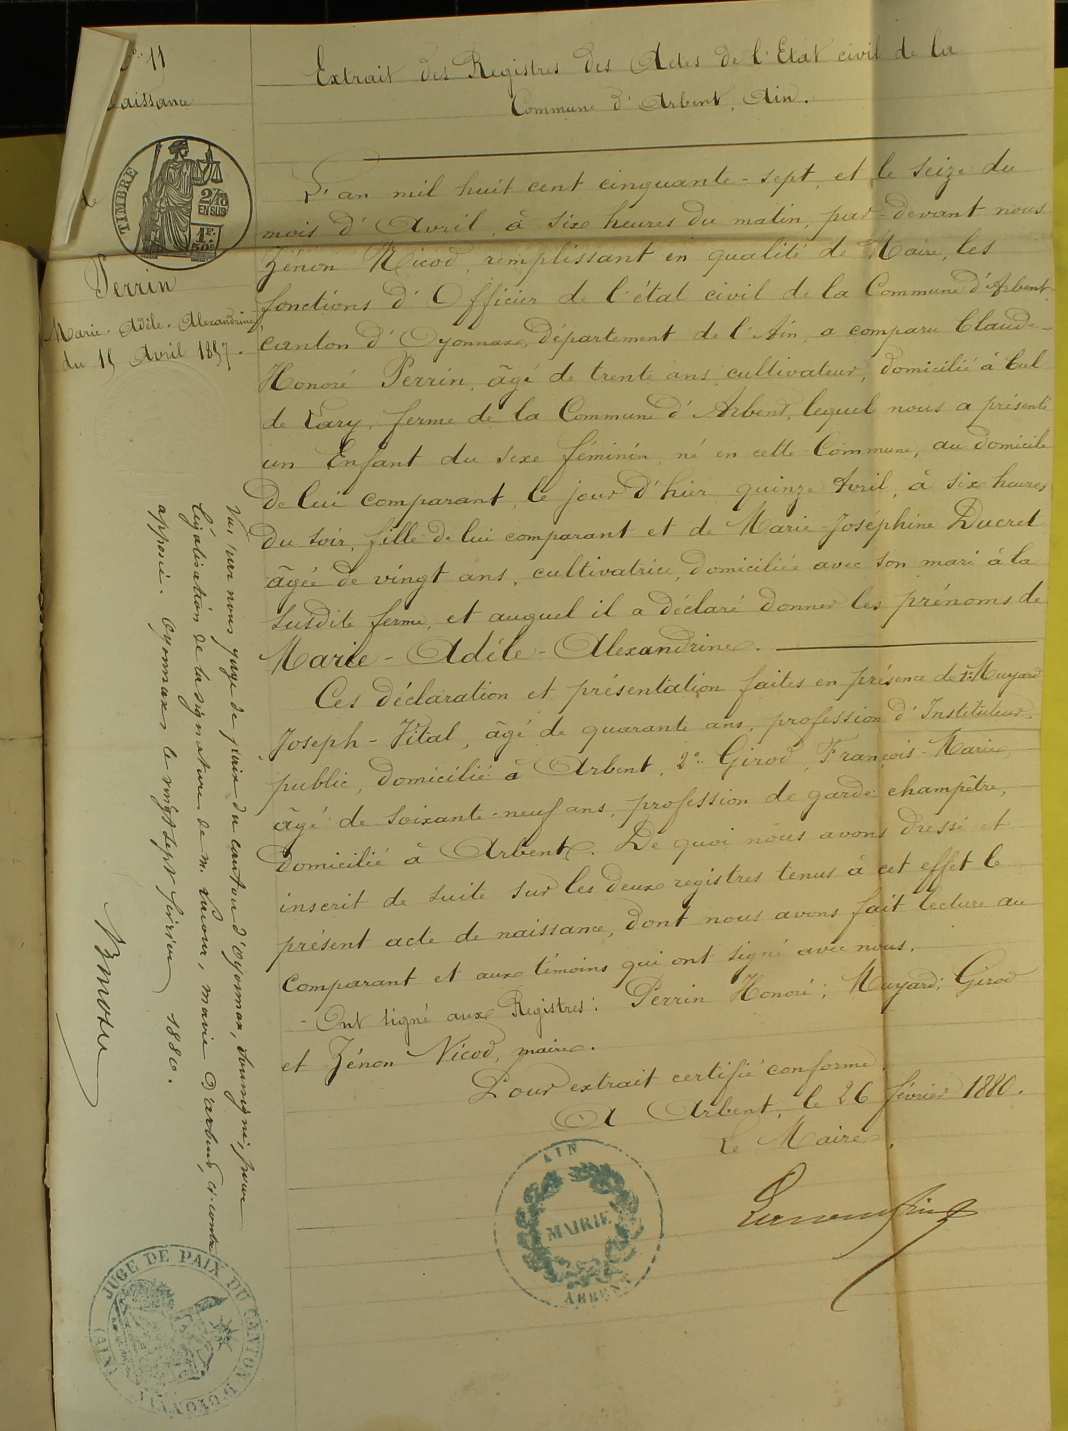 11
aissance
de
TIMBRE
2/10
EN SUS
1F.
50c
Perrin
Marie-Adèle-Alexandrine
du 15 Avril 1857.
Extrait des Registres des Actes de l'Etat civil de la
Commune d'Arbent, Ain.
L'an mil huit cent cinquante-sept, et le seize du
mois d'Avril, à six heures du matin, par-devant nous
Zénon Nicod, remplissant en qualité de Maire, les
fonctions d'Officier de l'état civil de la Commune d'Arbent
canton d'Oyonnax, département de l'Ain, a comparu Claude-
Honoré Perrin, âgé de trente ans, cultivateur, domicilié à Cul
de Lary, ferme de la Commune d'Arbent, lequel nous a présenté
un Enfant du sexe féminin, né en cette Commune, au domicile
de lui comparant, le jour d'hier quinze Avril, à six heures
du soir, fille de lui comparant et de Marie-Joséphine Ducret
âgée de vingt ans, cultivatrice, domiciliée avec son mari à la
susdite ferme, et auquel il a déclaré donner les prénoms de
Marie-Adèle-Alexandrine.
Ces déclaration et présentation faites en présence de 1° Muyard
Joseph-Vital, âgé de quarante ans, profession d'Instituteur
public, domicilié à Arbent, 2° Girod, François-Marie,
âgé de soixante-neuf ans, profession de garde champêtre,
domicilié à Arbent. De quoi nous avons dressé et
inscrit de suite sur les deux registres tenus à cet effet le
présent acte de naissance, dont nous avons fait lecture au
comparant et aux témoins qui ont signé avec nous.
- Ont signé aux Registres: Perrin Honoré; Muyard; Girod
et Zénon Nicod, maire.
Pour extrait certifié conforme.
A Arbent, le 26 février 1880.
Le Maire,
AIN
MAIRIE
ARBENT
Vu par nous juge de paix du canton d'Oyonnax, soussigné, pour
légalisation de la signature de M. , maire d'Arbent, ci-contre
apposée. Oyonnax le vingt sept février 1880.
JUGE DE PAIX DU CANTON D'OYONNAX (AIN)